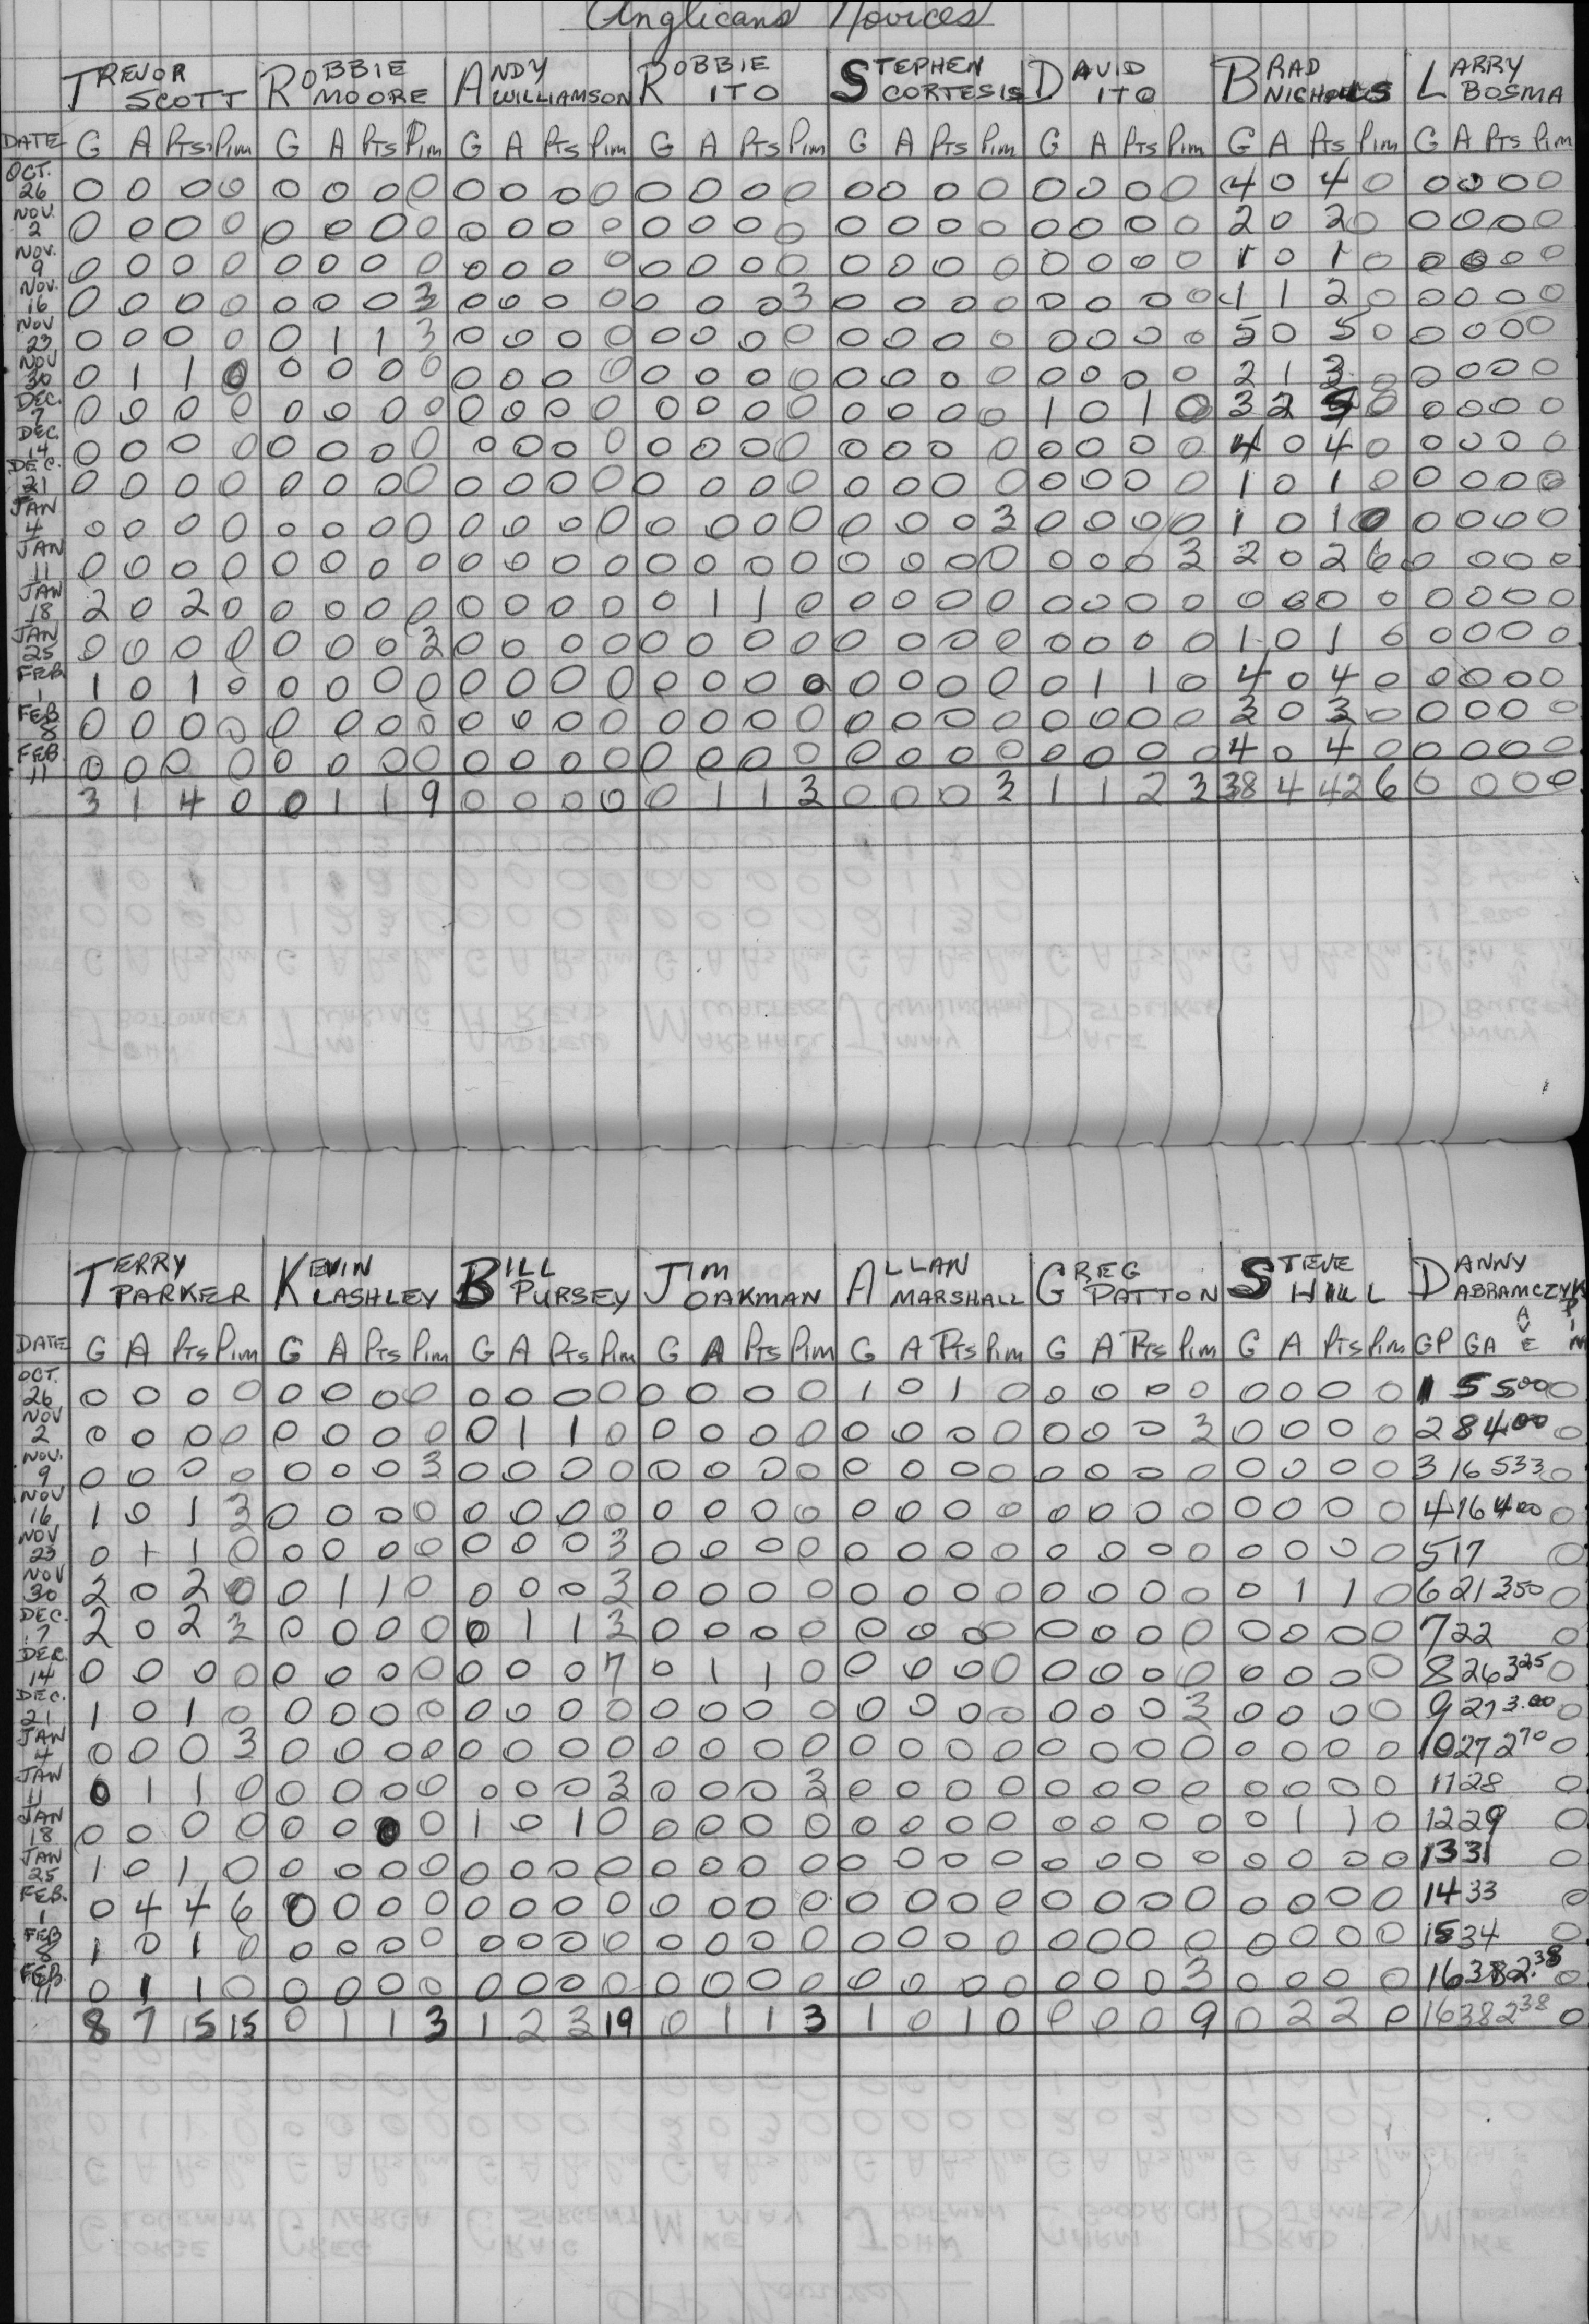 Anglicans Novices
TREVOR SCOTT ROBBIE MOORE ANDY WILLIAMSON ROBBIE ITO STEPHEN CORTESIS DAVID ITO BRAD NICHOLLS LARRY BOSMA
DATE G A Pts. Pim G A Pts Pim G A Pts Pim G A Pts Pim G A Pts Pim G A Pts Pim G A Pts Pim G A Pts Pim
OCT. 26 0 0 0 0 0 0 0 0 0 0 0 0 0 0 0 0 0 0 0 0 0 0 0 0 4 0 4 0 0 0 0 0
NOV. 2 0 0 0 0 0 0 0 0 0 0 0 0 0 0 0 0 0 0 0 0 0 0 0 0 2 0 2 0 0 0 0 0
NOV. 9 0 0 0 0 0 0 0 0 0 0 0 0 0 0 0 0 0 0 0 0 0 0 0 0 1 0 1 0 0 0 0 0
NOV. 16 0 0 0 0 0 0 0 3 0 0 0 0 0 0 0 3 0 0 0 0 0 0 0 0 1 1 2 0 0 0 0 0
NOV 23 0 0 0 0 0 1 1 3 0 0 0 0 0 0 0 0 0 0 0 0 0 0 0 0 5 0 5 0 0 0 0 0
NOV 30 0 1 1 0 0 0 0 0 0 0 0 0 0 0 0 0 0 0 0 0 0 0 0 0 2 1 3 0 0 0 0 0
DEC. 7 0 0 0 0 0 0 0 0 0 0 0 0 0 0 0 0 0 0 0 0 1 0 1 0 3 2 5 0 0 0 0 0
DEC. 14 0 0 0 0 0 0 0 0 0 0 0 0 0 0 0 0 0 0 0 0 0 0 0 0 4 0 4 0 0 0 0 0
DEC. 21 0 0 0 0 0 0 0 0 0 0 0 0 0 0 0 0 0 0 0 0 0 0 0 0 1 0 1 0 0 0 0 0
JAN 4 0 0 0 0 0 0 0 0 0 0 0 0 0 0 0 0 0 0 0 3 0 0 0 0 1 0 1 0 0 0 0 0
JAN 11 0 0 0 0 0 0 0 0 0 0 0 0 0 0 0 0 0 0 0 0 0 0 0 3 2 0 2 6 0 0 0 0
JAN 18 2 0 2 0 0 0 0 0 0 0 0 0 0 1 1 0 0 0 0 0 0 0 0 0 0 0 0 0 0 0 0 0
JAN 25 0 0 0 0 0 0 0 3 0 0 0 0 0 0 0 0 0 0 0 0 0 0 0 0 1 0 1 0 0 0 0 0
FEB. 1 1 0 1 0 0 0 0 0 0 0 0 0 0 0 0 0 0 0 0 0 0 1 1 0 4 0 4 0 0 0 0 0
FEB 8 0 0 0 0 0 0 0 0 0 0 0 0 0 0 0 0 0 0 0 0 0 0 0 0 3 0 3 0 0 0 0 0
FEB. 11 0 0 0 0 0 0 0 0 0 0 0 0 0 0 0 0 0 0 0 0 0 0 0 0 4 0 4 0 0 0 0 0
3 1 4 0 0 1 1 9 0 0 0 0 0 1 1 3 0 0 0 3 1 1 2 3 38 4 42 6 0 0 0 0
TERRY PARKER KEVIN LASHLEY BILL PURSEY JIM OAKMAN ALLAN MARSHALL GREG PATTON STEVE HILL DANNY ABRAMCZYK
DATE G A Pts Pim G A Pts Pim G A Pts Pim G A Pts Pim G A Pts Pim G A Pts Pim G A Pts Pim GP GA AVE PIM
OCT. 26 0 0 0 0 0 0 0 0 0 0 0 0 0 0 0 0 1 0 1 0 0 0 0 0 0 0 0 0 1 5 500 0
NOV 2 0 0 0 0 0 0 0 0 0 1 1 0 0 0 0 0 0 0 0 0 0 0 0 3 0 0 0 0 2 8 400 0
NOV. 9 0 0 0 0 0 0 0 3 0 0 0 0 0 0 0 0 0 0 0 0 0 0 0 0 0 0 0 0 3 16 533 0
NOV 16 1 0 1 3 0 0 0 0 0 0 0 0 0 0 0 0 0 0 0 0 0 0 0 0 0 0 0 0 4 16 400 0
NOV 23 0 1 1 0 0 0 0 0 0 0 0 3 0 0 0 0 0 0 0 0 0 0 0 0 0 0 0 0 5 17 0
NOV 30 2 0 2 0 0 1 1 0 0 0 0 3 0 0 0 0 0 0 0 0 0 0 0 0 0 1 1 0 6 21 350 0
DEC. 7 2 0 2 3 0 0 0 0 0 1 1 3 0 0 0 0 0 0 0 0 0 0 0 0 0 0 0 0 7 22 0
DEC. 14 0 0 0 0 0 0 0 0 0 0 0 7 0 1 1 0 0 0 0 0 0 0 0 0 0 0 0 0 8 26 325 0
DEC. 21 1 0 1 0 0 0 0 0 0 0 0 0 0 0 0 0 0 0 0 0 0 0 0 3 0 0 0 0 9 27 3.00 0
JAN 4 0 0 0 3 0 0 0 0 0 0 0 0 0 0 0 0 0 0 0 0 0 0 0 0 0 0 0 0 10 27 270 0
JAN 11 0 1 1 0 0 0 0 0 0 0 0 3 0 0 0 3 0 0 0 0 0 0 0 0 0 0 0 0 11 28 0
JAN 18 0 0 0 0 0 0 0 0 1 0 1 0 0 0 0 0 0 0 0 0 0 0 0 0 0 1 1 0 12 29 0
JAN 25 1 0 1 0 0 0 0 0 0 0 0 0 0 0 0 0 0 0 0 0 0 0 0 0 0 0 0 0 13 31 0
FEB. 1 0 4 4 6 0 0 0 0 0 0 0 0 0 0 0 0 0 0 0 0 0 0 0 0 0 0 0 0 14 33 0
FEB 8 1 0 1 0 0 0 0 0 0 0 0 0 0 0 0 0 0 0 0 0 0 0 0 0 0 0 0 0 15 34 0
FEB. 11 0 1 1 0 0 0 0 0 0 0 0 0 0 0 0 0 0 0 0 0 0 0 0 3 0 0 0 0 16 38 2.38 0
8 7 15 15 0 1 1 3 1 2 3 19 0 1 1 3 1 0 1 0 0 0 0 9 0 2 2 0 16 38 238 0